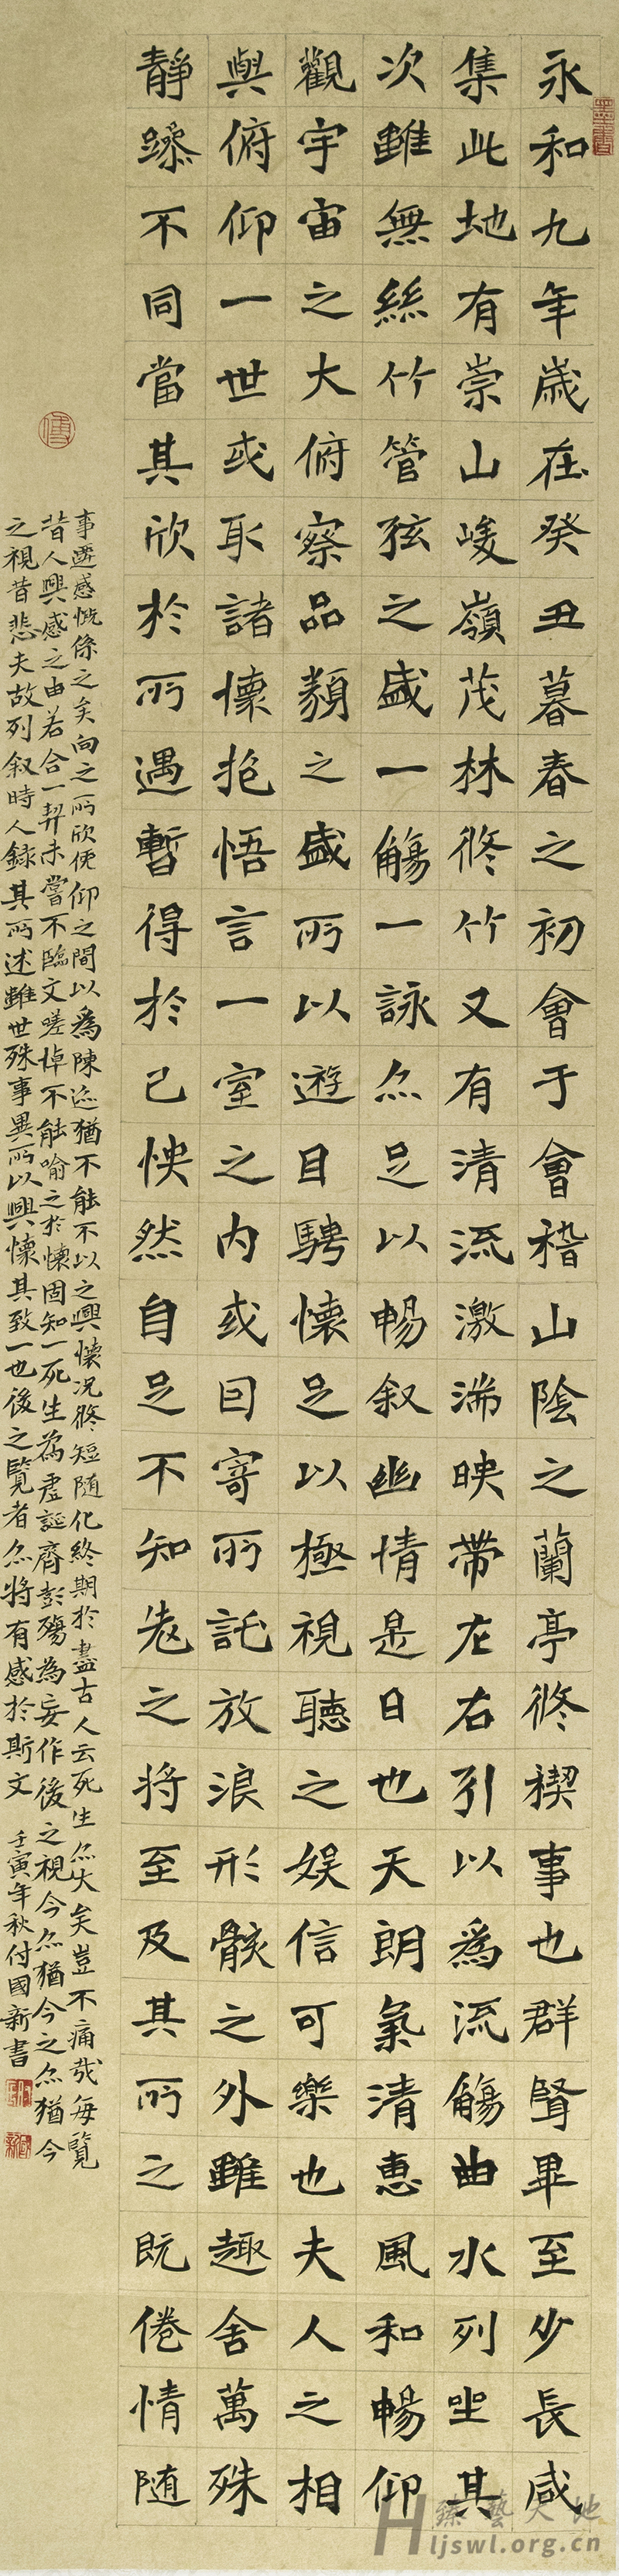 永和九年歲在癸丑暮春之初會于會稽山陰之蘭亭脩稧事也群賢畢至少長咸
集此地有崇山峻嶺茂林脩竹又有清流激湍映帶左右引以爲流觴曲水列坐其
次雖無絲竹管弦之盛一觴一詠亦足以暢叙幽情是日也天朗氣清惠風和暢仰
觀宇宙之大俯察品類之盛所以遊目騁懷足以極視聽之娱信可樂也夫人之相
與俯仰一世或取諸懷抱悟言一室之内或因寄所託放浪形骸之外雖趣舍萬殊
靜躁不同當其欣於所遇暫得於己怏然自足不知老之將至及其所之既倦情随
事遷感慨係之矣向之所欣俛仰之間以爲陳迹猶不能不以之興懷况脩短随化終期於盡古人云死生亦大矣豈不痛哉每覽
昔人興感之由若合一契未嘗不臨文嗟悼不能喻之於懷固知一死生爲虛誕齊彭殤為妄作後之視今亦猶今之亦猶今
之視昔悲夫故列叙時人録其所述雖世殊事異所以興懷其致一也後之覽者亦將有感於斯文
壬寅年秋付國新書
臻藝天地
Hljswl.org.cn